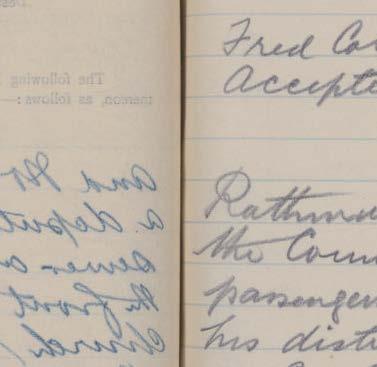 Fred Co
Accepte
Rathm
the Coun
passenger
his dist
The following
thereon, as follows:—
and Mr
a deput
sewer a
the front
church